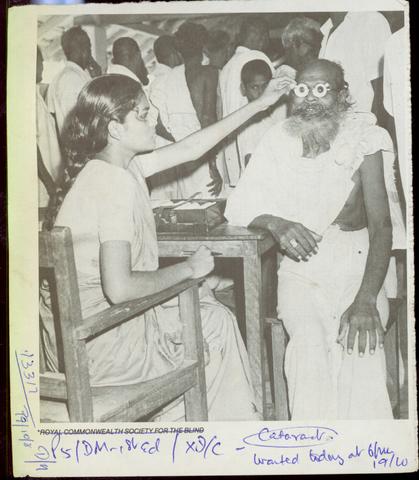 *ROYAL COMMONWEALTH SOCIETY FOR THE BLIND
PS/DM-1st Ed / XD/C - Cataract
wanted today at 6pm
19/10